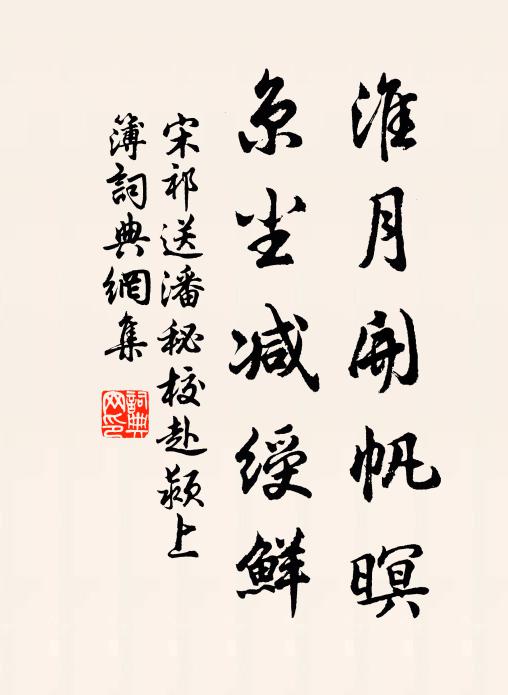 淮月開帆暝
京尘减綬鮮
宋祁送潘秘校赴潁上
簿詞典網集
詞典网印